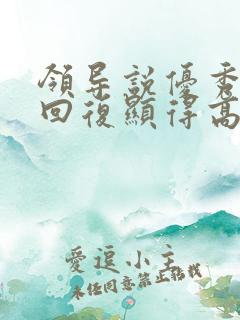 領导說優秀
回復顯得高
愛逗小主
未任同意禁止轉載